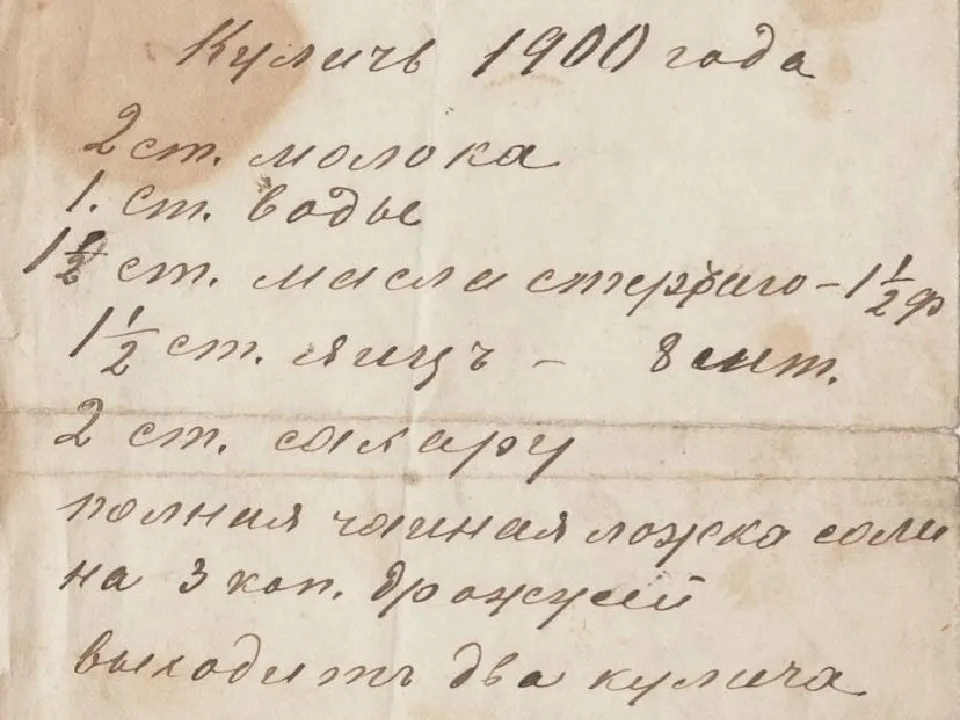 Куличъ 1900 года
2 ст. молока
1. ст. воды
1 1/2 ст. масла стертаго – 1 1/2 ф
1 1/2 ст. яицъ – 8 шт.
2 ст. сахару
полная чайная ложка соли
на 3 коп. дрожжей
выходитъ два кулича